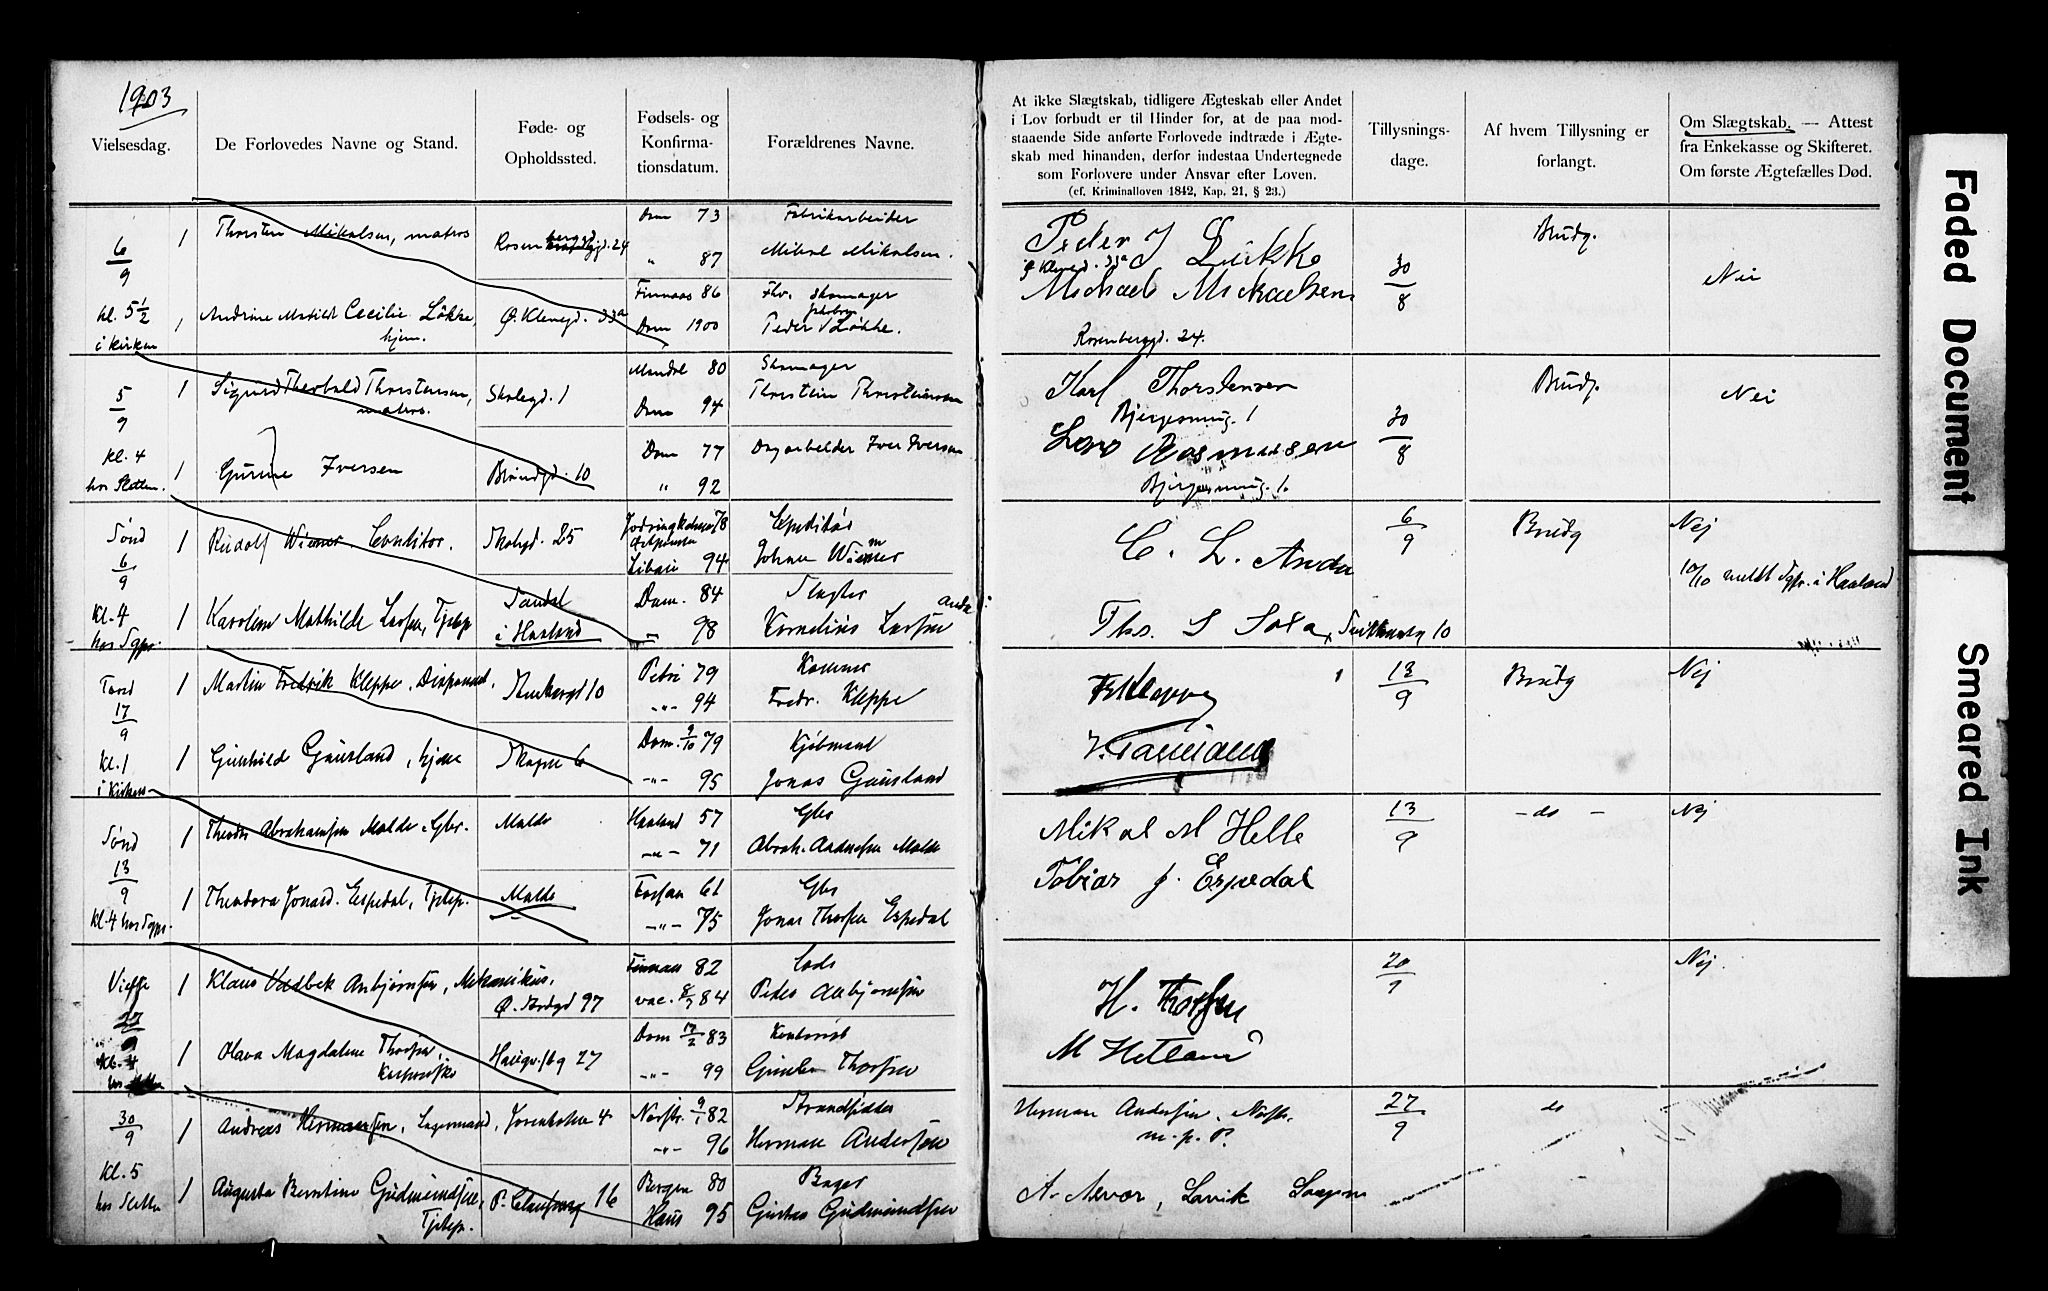 1903
Vielsesdag.
De Forlovedes Navne og Stand.
Føde- og
Opholdssted.
Fødsels- og
Konfirma-
tionsdatum.
Forældrenes Navne.
6/9
Kl. 5 1/2
i Kirken
1 Thorsten Mikalsen, matros
Rosenbergd. 24
Dom 73
" 87
Fabrikarbeider
Mikal Mikalsen.
1 Andrine Matilde Cecilie Løkke,
hjem.
Ø. Klevegd. 33a
Finnaas 86
Dom 1900
Fhv. Skomager
Peder Jakobsen Løkke.
5/9
Kl. 4
hos Sletten.
1 Sigurd Thorbald Thorstensen,
matros.
Skolegd. 1
Mandal 80
Dom 94
Skomager
Thorstein Thorsteinsen
1 Gurine Iversen
Brøndgd. 10
Dom 77
" 92
Dagarbeider Iver Iversen
Sønd
6/9
Kl. 4
hos Sgpr.
1 Rudolf Wiemer, Conditor.
Skolegd. 25
78
Libau 94
Expeditør
Johan Wiemer
1 Karoline Mathilde Larsen, Tjstep.
Sandal
i Haaland
Dom. 84
" 98
Slagter
Kornelius Larsen Anda
Torsd
17/9
Kl. 1
i Kirken
1 Martin Fredrik Kleppe, Disponent.
10
Petri 79
" 94
Fredr. Kleppe
1 Gunhild Gausland, hjem
6
Dom. 9/10 79
" 95
Kjøbmand
Jonas Gausland
Sønd
13/9
Kl. 4 hos Sgpr.
1 Theodor Abrahamsen Malde, Gbr.
Malde
Haaland 57
" 71
Gbr
Abrah. Andersen Malde
1 Theodora Jonasd. Espedal, Tjstep.
Malde
Forsan 61
" 75
Gbr
Jonas Thorsen Espedal
Vielse
27/9
Kl. 4
1 Klaus Vadbek Anbjørnsen, Mekanikus.
97
Finnaas 82
vac. 84
Lods
Peder Anbjørnsen
1 Olava Magdalene Thorsen,
27
Dom 17/2 83
" 99
Kontorist
Thorsen
30/9
Kl. 5
hos Sletten
1 Andreas Hermansen, Lagermand,
Jorenholmen 4
9/1 82
" 96
Strandsidder
Herman Andersen
1 Augusta Berntine Gudmundsen,
Tjstep.
16
Bergen 80
Haus 95
Bager
Gustav Gudmundsen
At ikke Slægtskab, tidligere Ægteskab eller Andet
i Lov forbudt er til Hinder for, at de paa mod-
staaende Side anførte Forlovede indtræde i Ægte-
skab med hinanden, derfor indestaa Undertegnede
som Forlovere under Ansvar efter Loven.
(cf. Kriminalloven 1842, Kap. 21, § 23.)
Tillysnings-
dage.
Af hvem Tillysning er
forlangt.
Om Slægtskab. — Attest
fra Enkekasse og Skifteret.
Om første Ægtefælles Død.
Peder J Løkke
Ø Klevegd. 33a
Michael Mickaelsen
Rosenberggd. 24.
30/8
Brudg.
Nei
Karl Thorstensen
Bjergesmug. 1
Lars Rasmussen
Bjergesmug. 1.
30/8
Brudg.
Nei
C. L. Anda
Ths. S Sola, 10
6/9
Brudg
Nej
10/10 meldt Sgpr. i Haaland
13/9
Brudg
Nej
Mikal M Helle
Tobias J. Espedal
13/9
- do -
Nej
H. Thorsen
M Hetland
20/9
Nej.
Herman Andersen.
m. p. P.
27/9
do
Faded Document
Smeared Ink